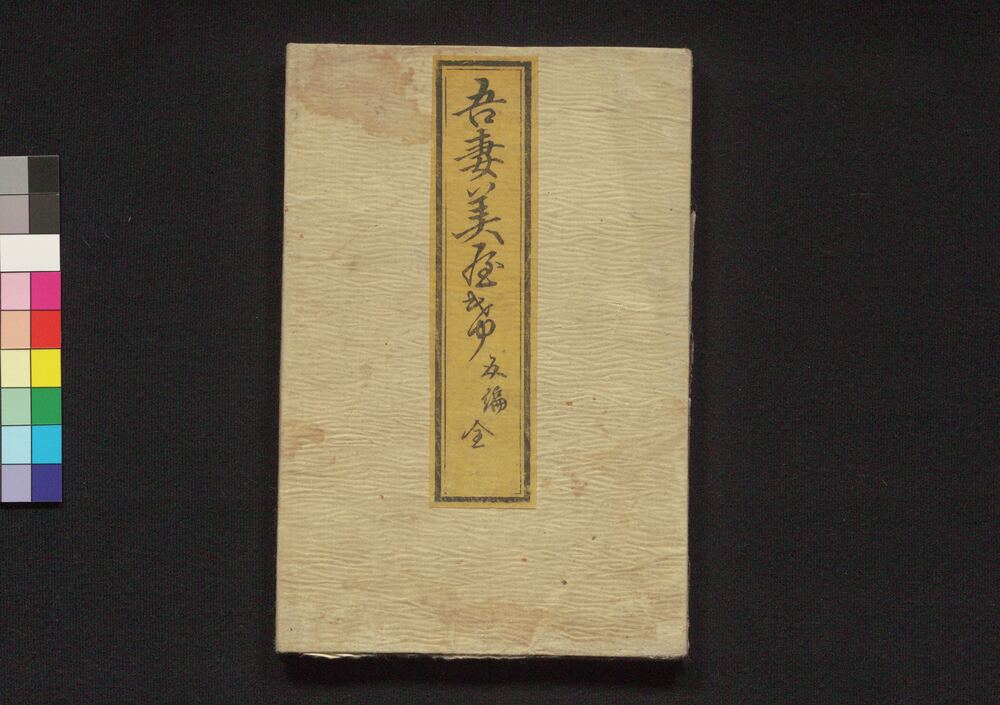 吾妻美屋希 五編
全